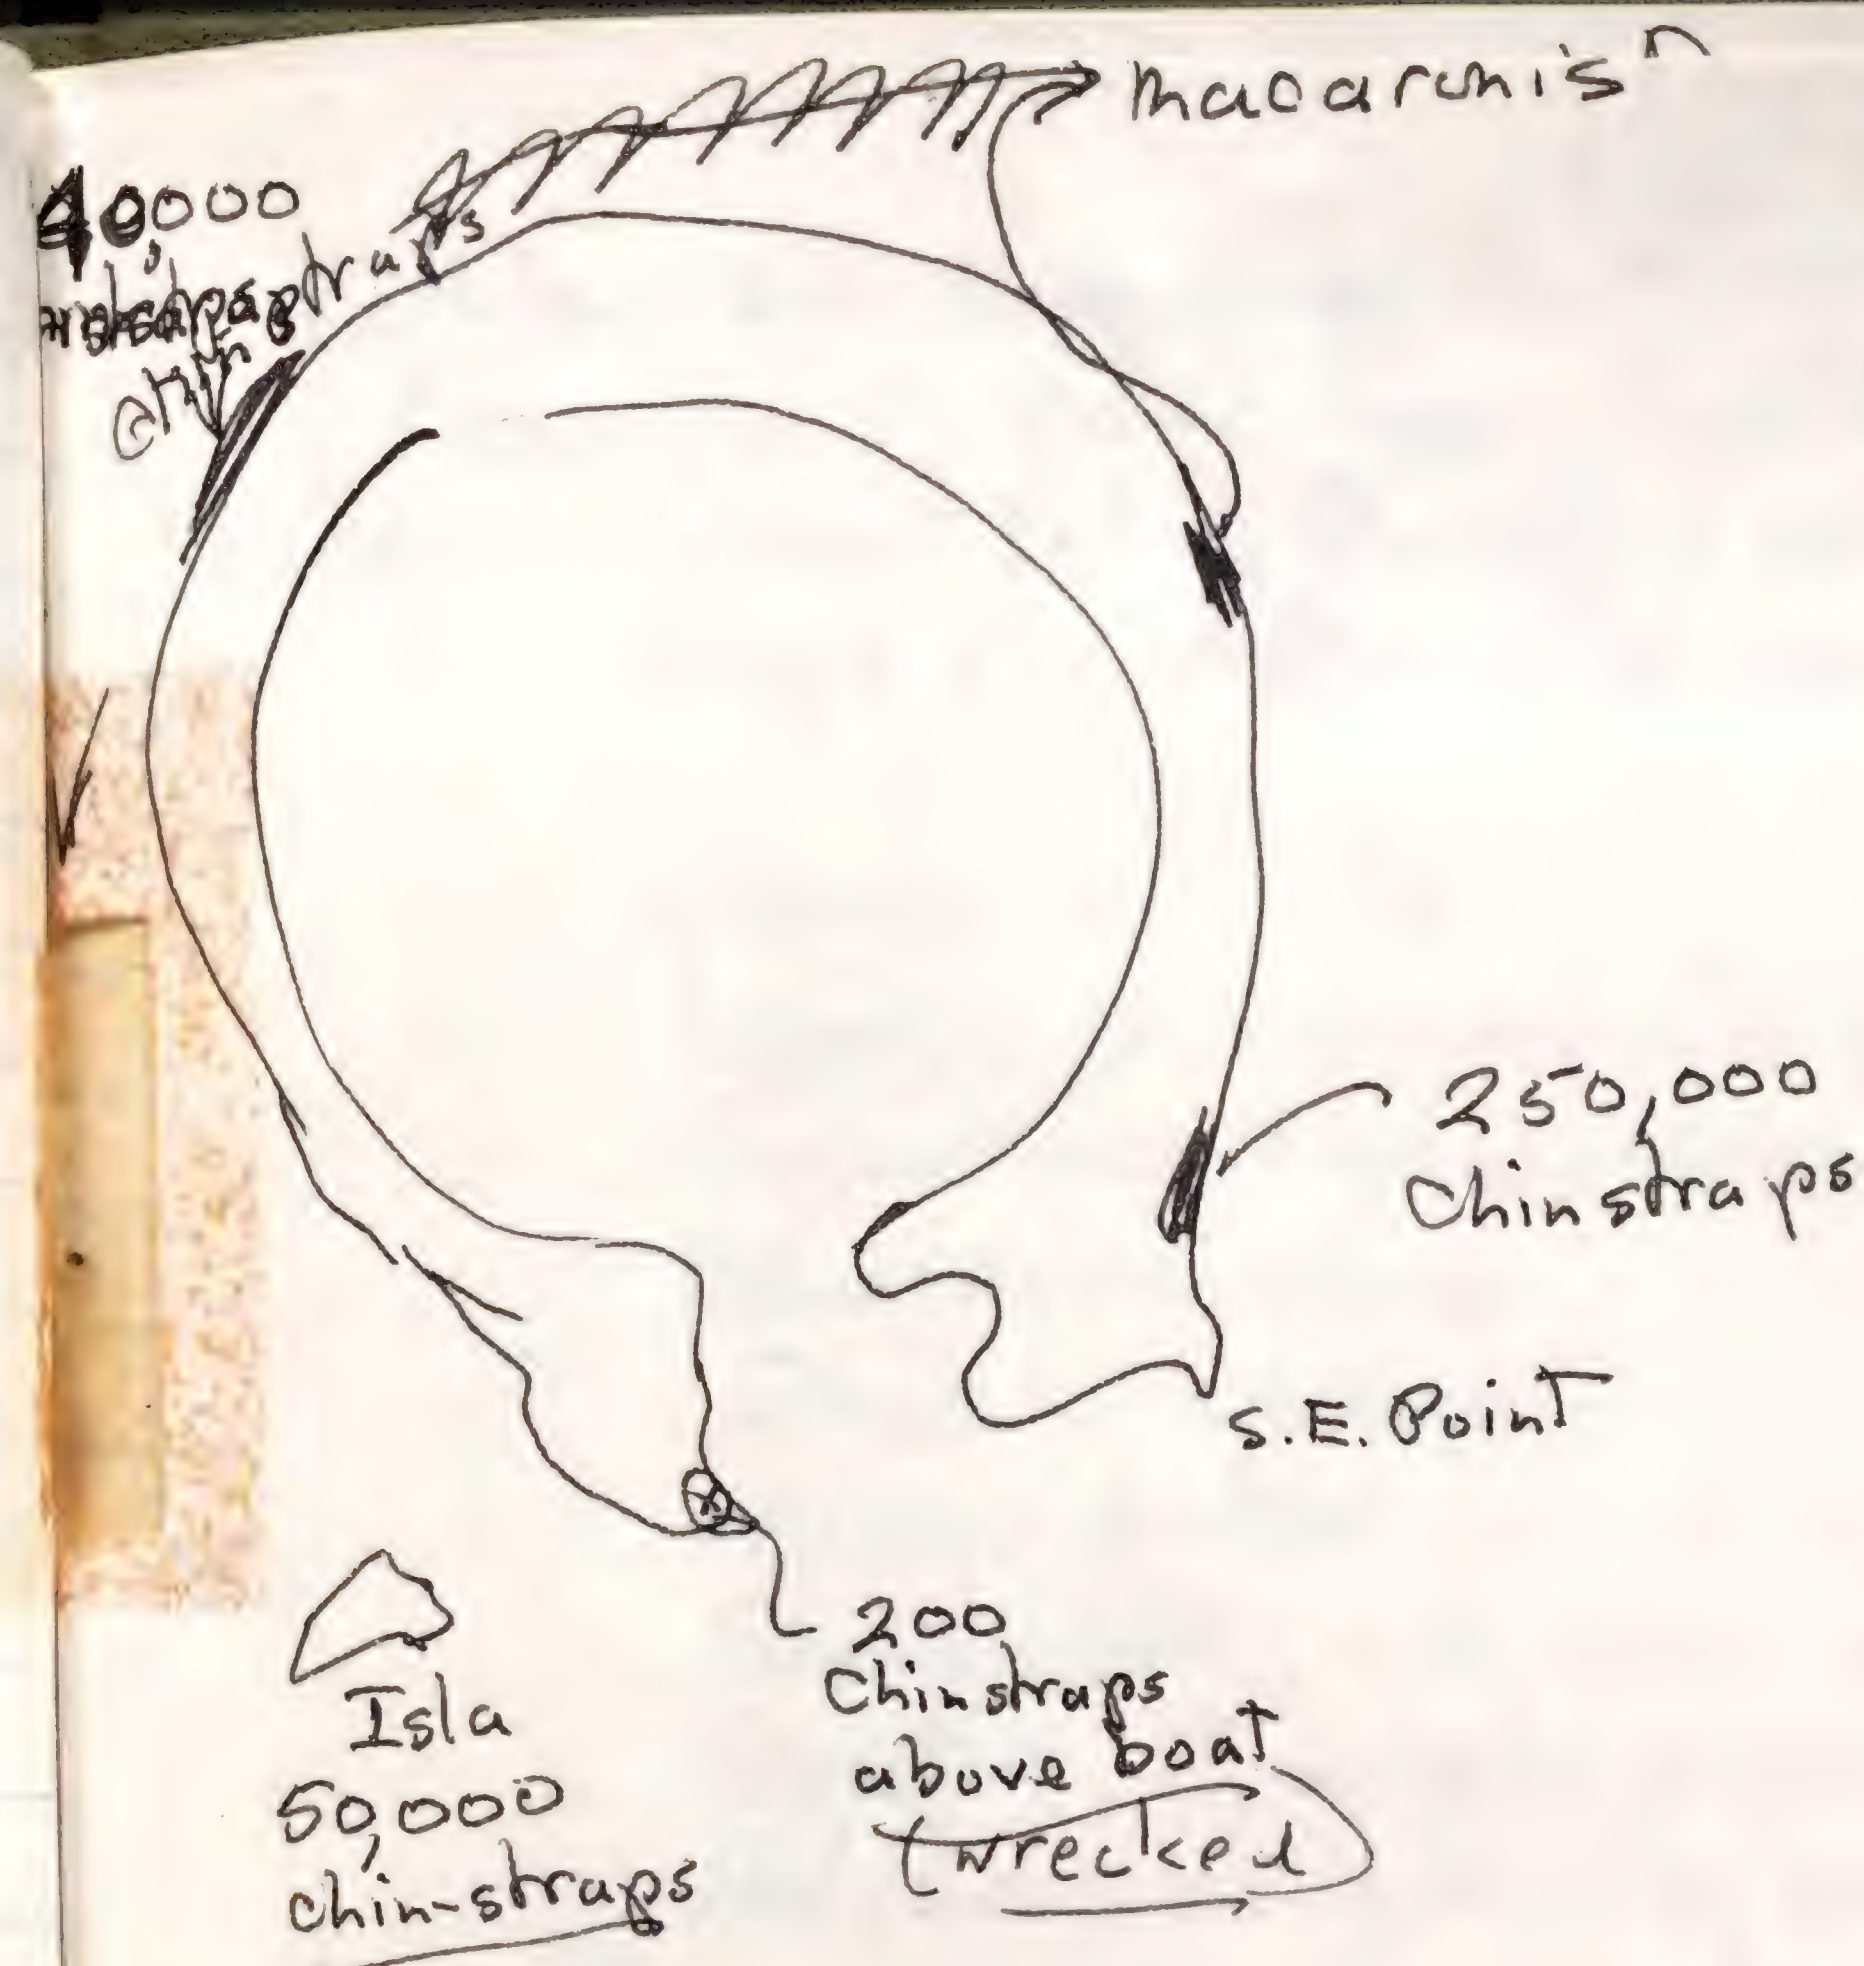 macaronis
40,000
250,000
Chinstraps
S.E. Point
200
Chinstraps
above boat
(wrecked)
Isla
50,000
chin-straps